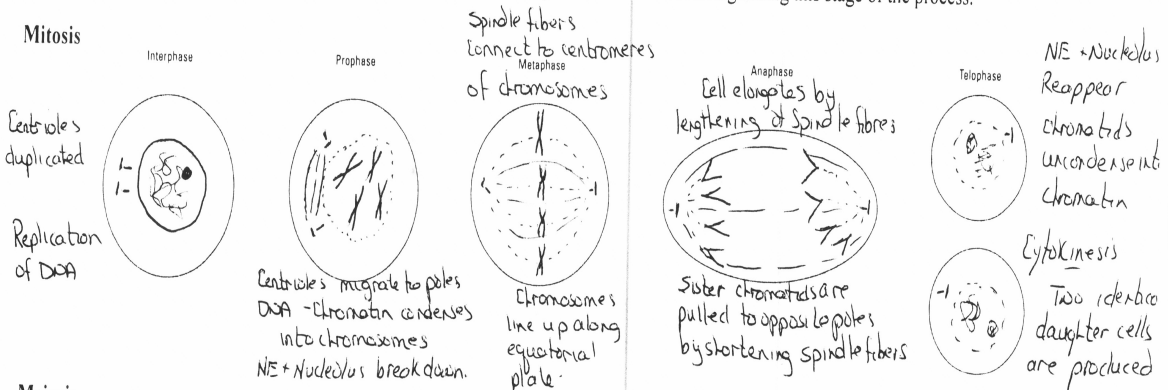 stage of the process.
Mitosis
Interphase
Centrioles
duplicated
Replication
of DNA
Prophase
Centrioles migrate to poles
DNA - Chromatin condenses
into chromosomes
NE + Nucleolus break down.
Spindle fibers
Connect to centromeres
Metaphase
of chromosomes
Chromosomes
line up along
equatorial
plate.
Anaphase
Cell elongates by
lengthening of Spindle fibres
Sister chromatids are
pulled to opposite poles
by shortening spindle fibers
Telophase
NE + Nucleolus
Reappear
Chromatids
uncondense int
chromatin
Cytokinesis
Two identica
daughter cells
are produced